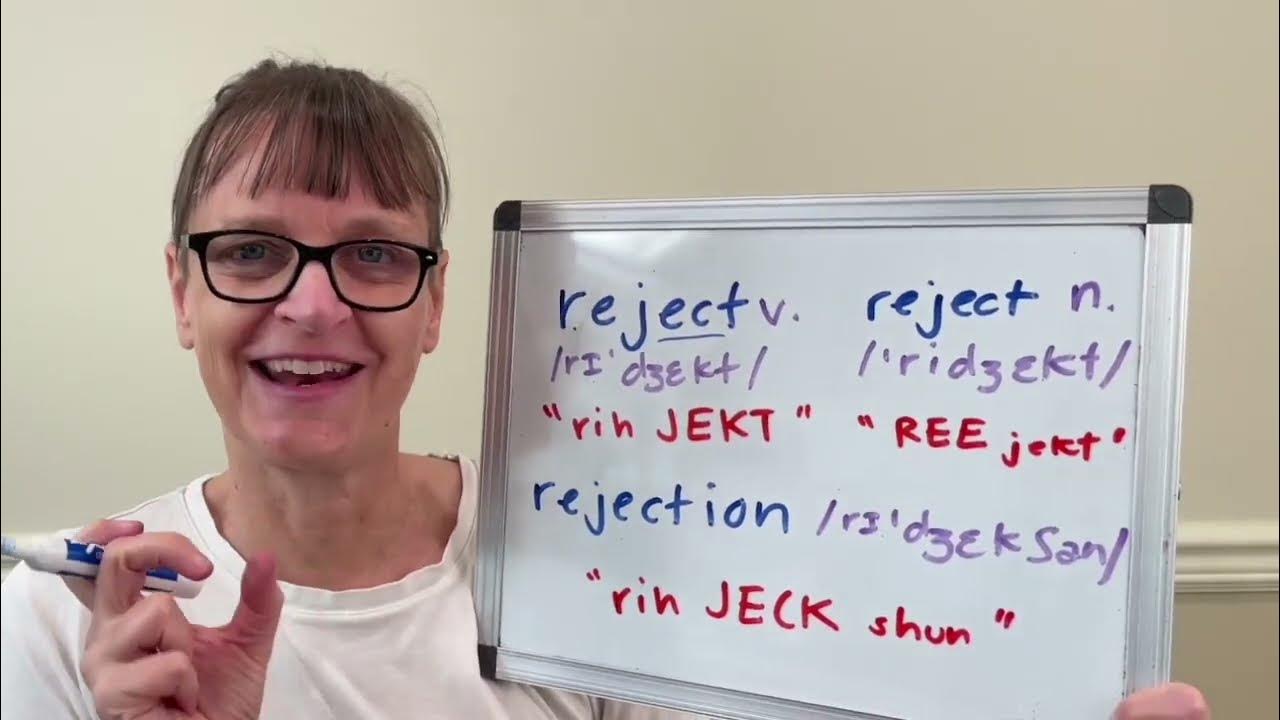 reject v. reject n.
/rɪˈdʒɛkt/ /ˈridʒɛkt/
"rih JEKT" "REE jekt"
rejection /rɪˈdʒɛkʃən/
"rih JECK shun"